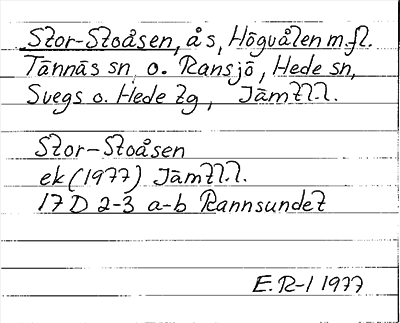 Stor-Stoåsen, ås, Högvålen m.fl.
Tännäs sn o. Ransjö, Hede sn,
Svegs o. Hede tg, Jämtl.l.
Stor-Stoåsen
ek (1977) Jämtl.l.
17 D 2-3 a-b Rannsundet
E.R-l 1977